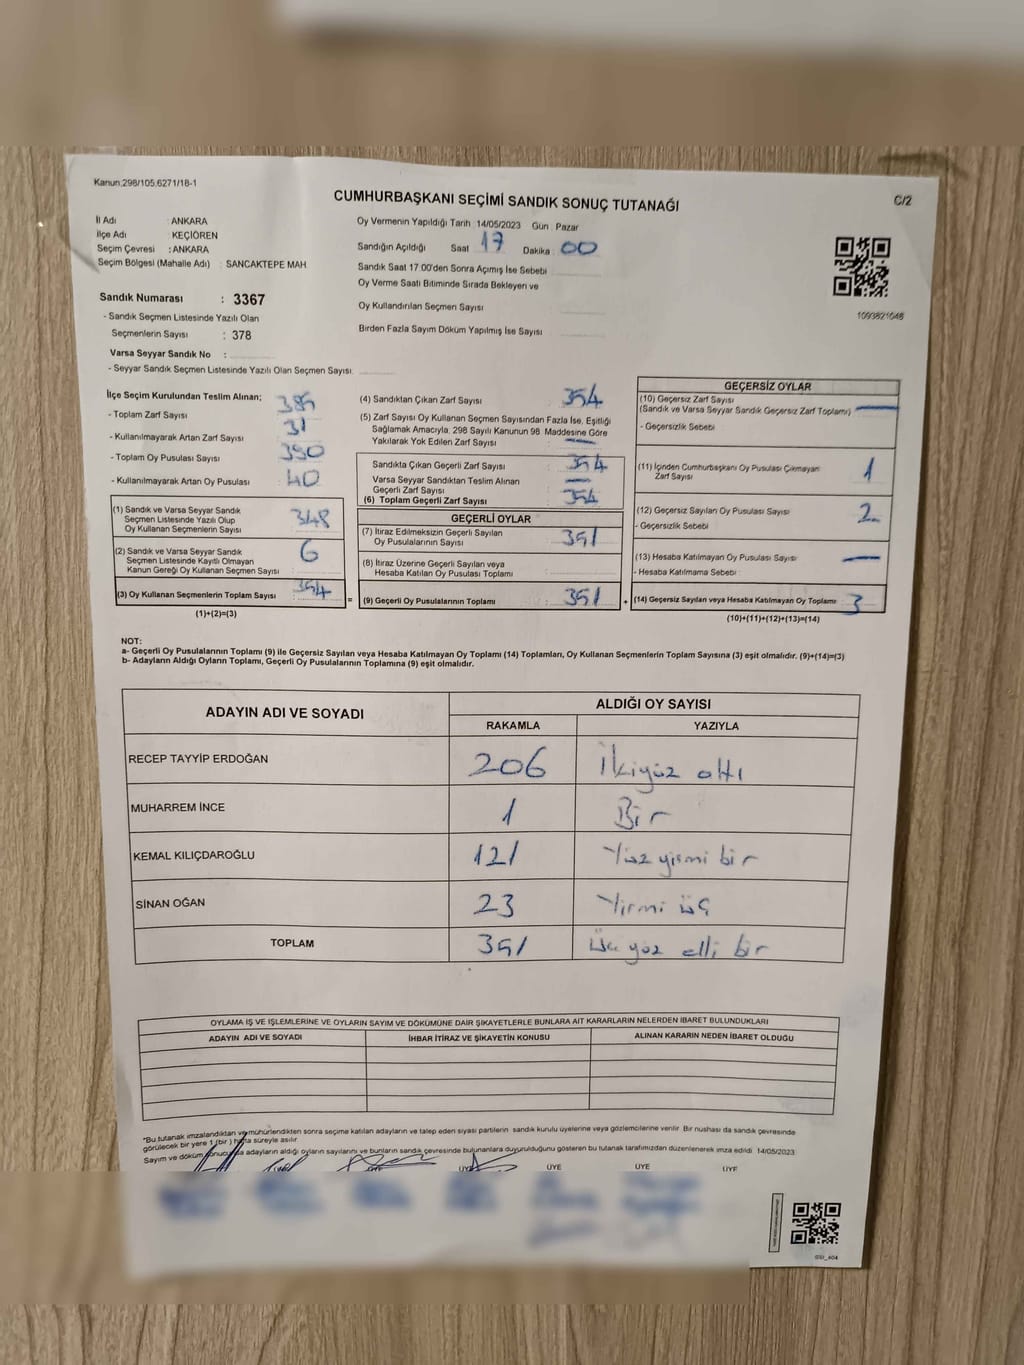 Kanun.298/105.6271/18-1
CUMHURBAŞKANI SEÇİMİ SANDIK SONUÇ TUTANAĞI
C/2
İl Adı : ANKARA
İlçe Adı : KEÇİÖREN
Seçim Çevresi : ANKARA
Seçim Bölgesi (Mahalle Adı) : SANCAKTEPE MAH
Oy Vermenin Yapıldığı Tarih 14/05/2023 Gün : Pazar
Sandığın Açıldığı Saat 17 Dakika : 00
Sandık Saat 17 00'den Sonra Açımış İse Sebebi
Oy Verme Saati Bitiminde Sırada Bekleyen ve
Oy Kullandırılan Seçmen Sayısı
Birden Fazla Sayım Döküm Yapılmış İse Sayısı
1093821048
Sandık Numarası : 3367
- Sandık Seçmen Listesinde Yazılı Olan
Seçmenlerin Sayısı : 378
Varsa Seyyar Sandık No :
- Seyyar Sandık Seçmen Listesinde Yazılı Olan Seçmen Sayısı:
İlçe Seçim Kurulundan Teslim Alınan;
- Toplam Zarf Sayısı : 385
- Kullanılmayarak Artan Zarf Sayısı : 31
- Toplam Oy Pusulası Sayısı : 390
- Kullanılmayarak Artan Oy Pusulası : 40
(1) Sandık ve Varsa Seyyar Sandık
Seçmen Listesinde Yazılı Olup
Oy Kullanan Seçmenlerin Sayısı : 348
(2) Sandık ve Varsa Seyyar Sandık
Seçmen Listesinde Kayıtlı Olmayan
Kanun Gereği Oy Kullanan Seçmen Sayısı : 6
(3) Oy Kullanan Seçmenlerin Toplam Sayısı : 354
(1)+(2)=(3)
(4) Sandıktan Çıkan Zarf Sayısı : 354
(5) Zarf Sayısı Oy Kullanan Seçmen Sayısından Fazla İse, Eşitliği
Sağlamak Amacıyla, 298 Sayılı Kanunun 98. Maddesine Göre
Yakılarak Yok Edilen Zarf Sayısı : —
Sandıkta Çıkan Geçerli Zarf Sayısı : 354
Varsa Seyyar Sandıktan Teslim Alınan
Geçerli Zarf Sayısı : —
(6) Toplam Geçerli Zarf Sayısı : 354
GEÇERLİ OYLAR
(7) İtiraz Edilmeksizin Geçerli Sayılan
Oy Pusulalarının Sayısı : 351
(8) İtiraz Üzerine Geçerli Sayılan veya
Hesaba Katılan Oy Pusulası Toplamı :
= (9) Geçerli Oy Pusulalarının Toplamı : 351 +
GEÇERSİZ OYLAR
(10) Geçersiz Zarf Sayısı
(Sandık ve Varsa Seyyar Sandık Geçersiz Zarf Toplamı) : —
- Geçersizlik Sebebi
(11) İçinden Cumhurbaşkanı Oy Pusulası Çıkmayan
Zarf Sayısı : 1
(12) Geçersiz Sayılan Oy Pusulası Sayısı : 2
- Geçersizlik Sebebi
(13) Hesaba Katılmayan Oy Pusulası Sayısı : —
- Hesaba Katılmama Sebebi :
(14) Geçersiz Sayılan veya Hesaba Katılmayan Oy Toplamı : 3
(10)+(11)+(12)+(13)=(14)
NOT:
a- Geçerli Oy Pusulalarının Toplamı (9) ile Geçersiz Sayılan veya Hesaba Katılmayan Oy Toplamı (14) Toplamları, Oy Kullanan Seçmenlerin Toplam Sayısına (3) eşit olmalıdır. (9)+(14)=(3)
b- Adayların Aldığı Oyların Toplamı, Geçerli Oy Pusulalarının Toplamına (9) eşit olmalıdır.
ADAYIN ADI VE SOYADI ALDIĞI OY SAYISI
RAKAMLA YAZIYLA
RECEP TAYYİP ERDOĞAN 206 İkiyüz altı
MUHARREM İNCE 1 Bir
KEMAL KILIÇDAROĞLU 121 Yüz yirmi bir
SİNAN OĞAN 23 Yirmi üç
TOPLAM 351 Üç yüz elli bir
OYLAMA İŞ VE İŞLEMLERİNE VE OYLARIN SAYIM VE DÖKÜMÜNE DAİR ŞİKAYETLERLE BUNLARA AİT KARARLARIN NELERDEN İBARET BULUNDUKLARI
ADAYIN ADI VE SOYADI İHBAR İTİRAZ VE ŞİKAYETİN KONUSU ALINAN KARARIN NEDEN İBARET OLDUĞU
*Bu tutanak imzalandıktan ve mühürlendikten sonra seçime katılan adayların ve talep eden siyasi partilerin sandık kurulu üyelerine veya gözlemcilerine verilir. Bir nushası da sandık çevresinde
görülecek bir yere 1 (bir ) hafta süreyle asılır.
Sayım ve döküm sonucunda adayların aldığı oyların sayılarını ve bunların sandık çevresinde bulunanlara duyurulduğunu gösteren bu tutanak tarafımızdan düzenlenerek imza edildi 14/05/2023
ÜYE ÜYE ÜYE ÜYE